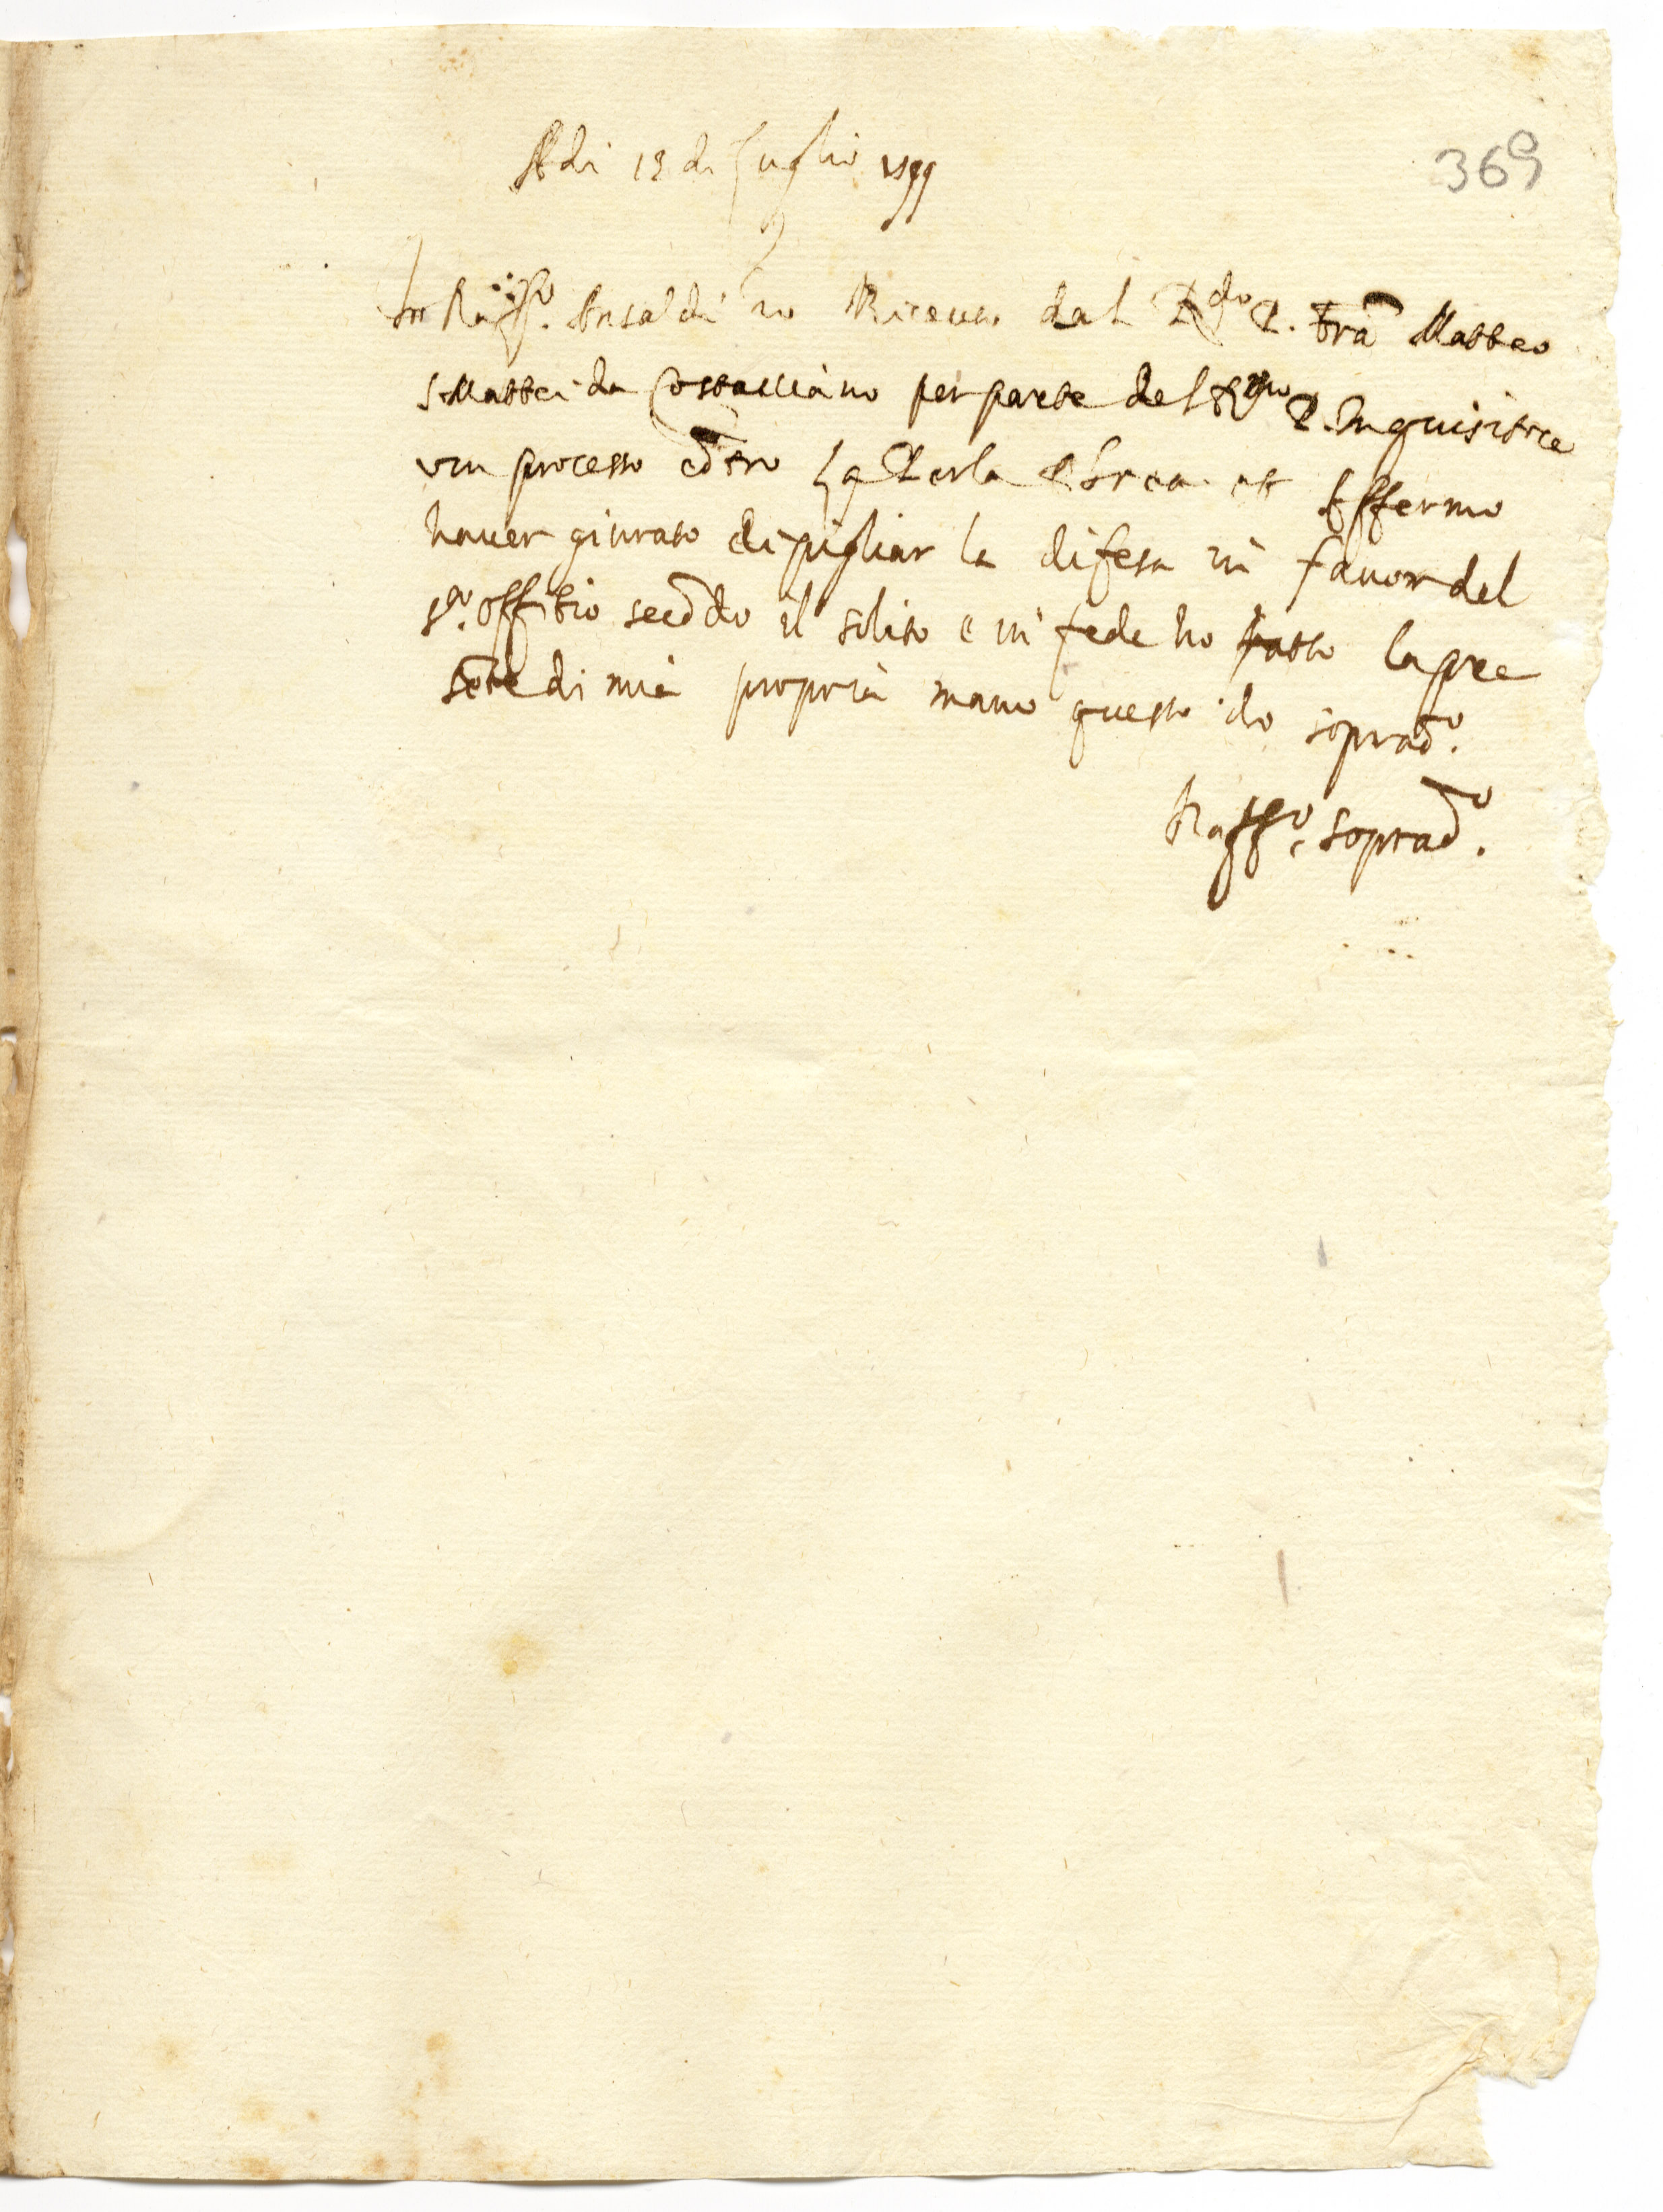 Adi 13 di Luglio 1599
369
Io Raffo. Ansaldi ho Riceuuto dal Rdo P. frà Matteo
Mattei da Costacciaro per parte del Rmo P. Inquisitore
vn processo cōtro la Perla Ebrea et Affermo
hauer giurato di pigliar la difesa in fauor del
sto. Offitio secōdo il solito e in fede ho fatto la pre
sēte di mia propria mano questo dì soprado.
Raffo. soprado.